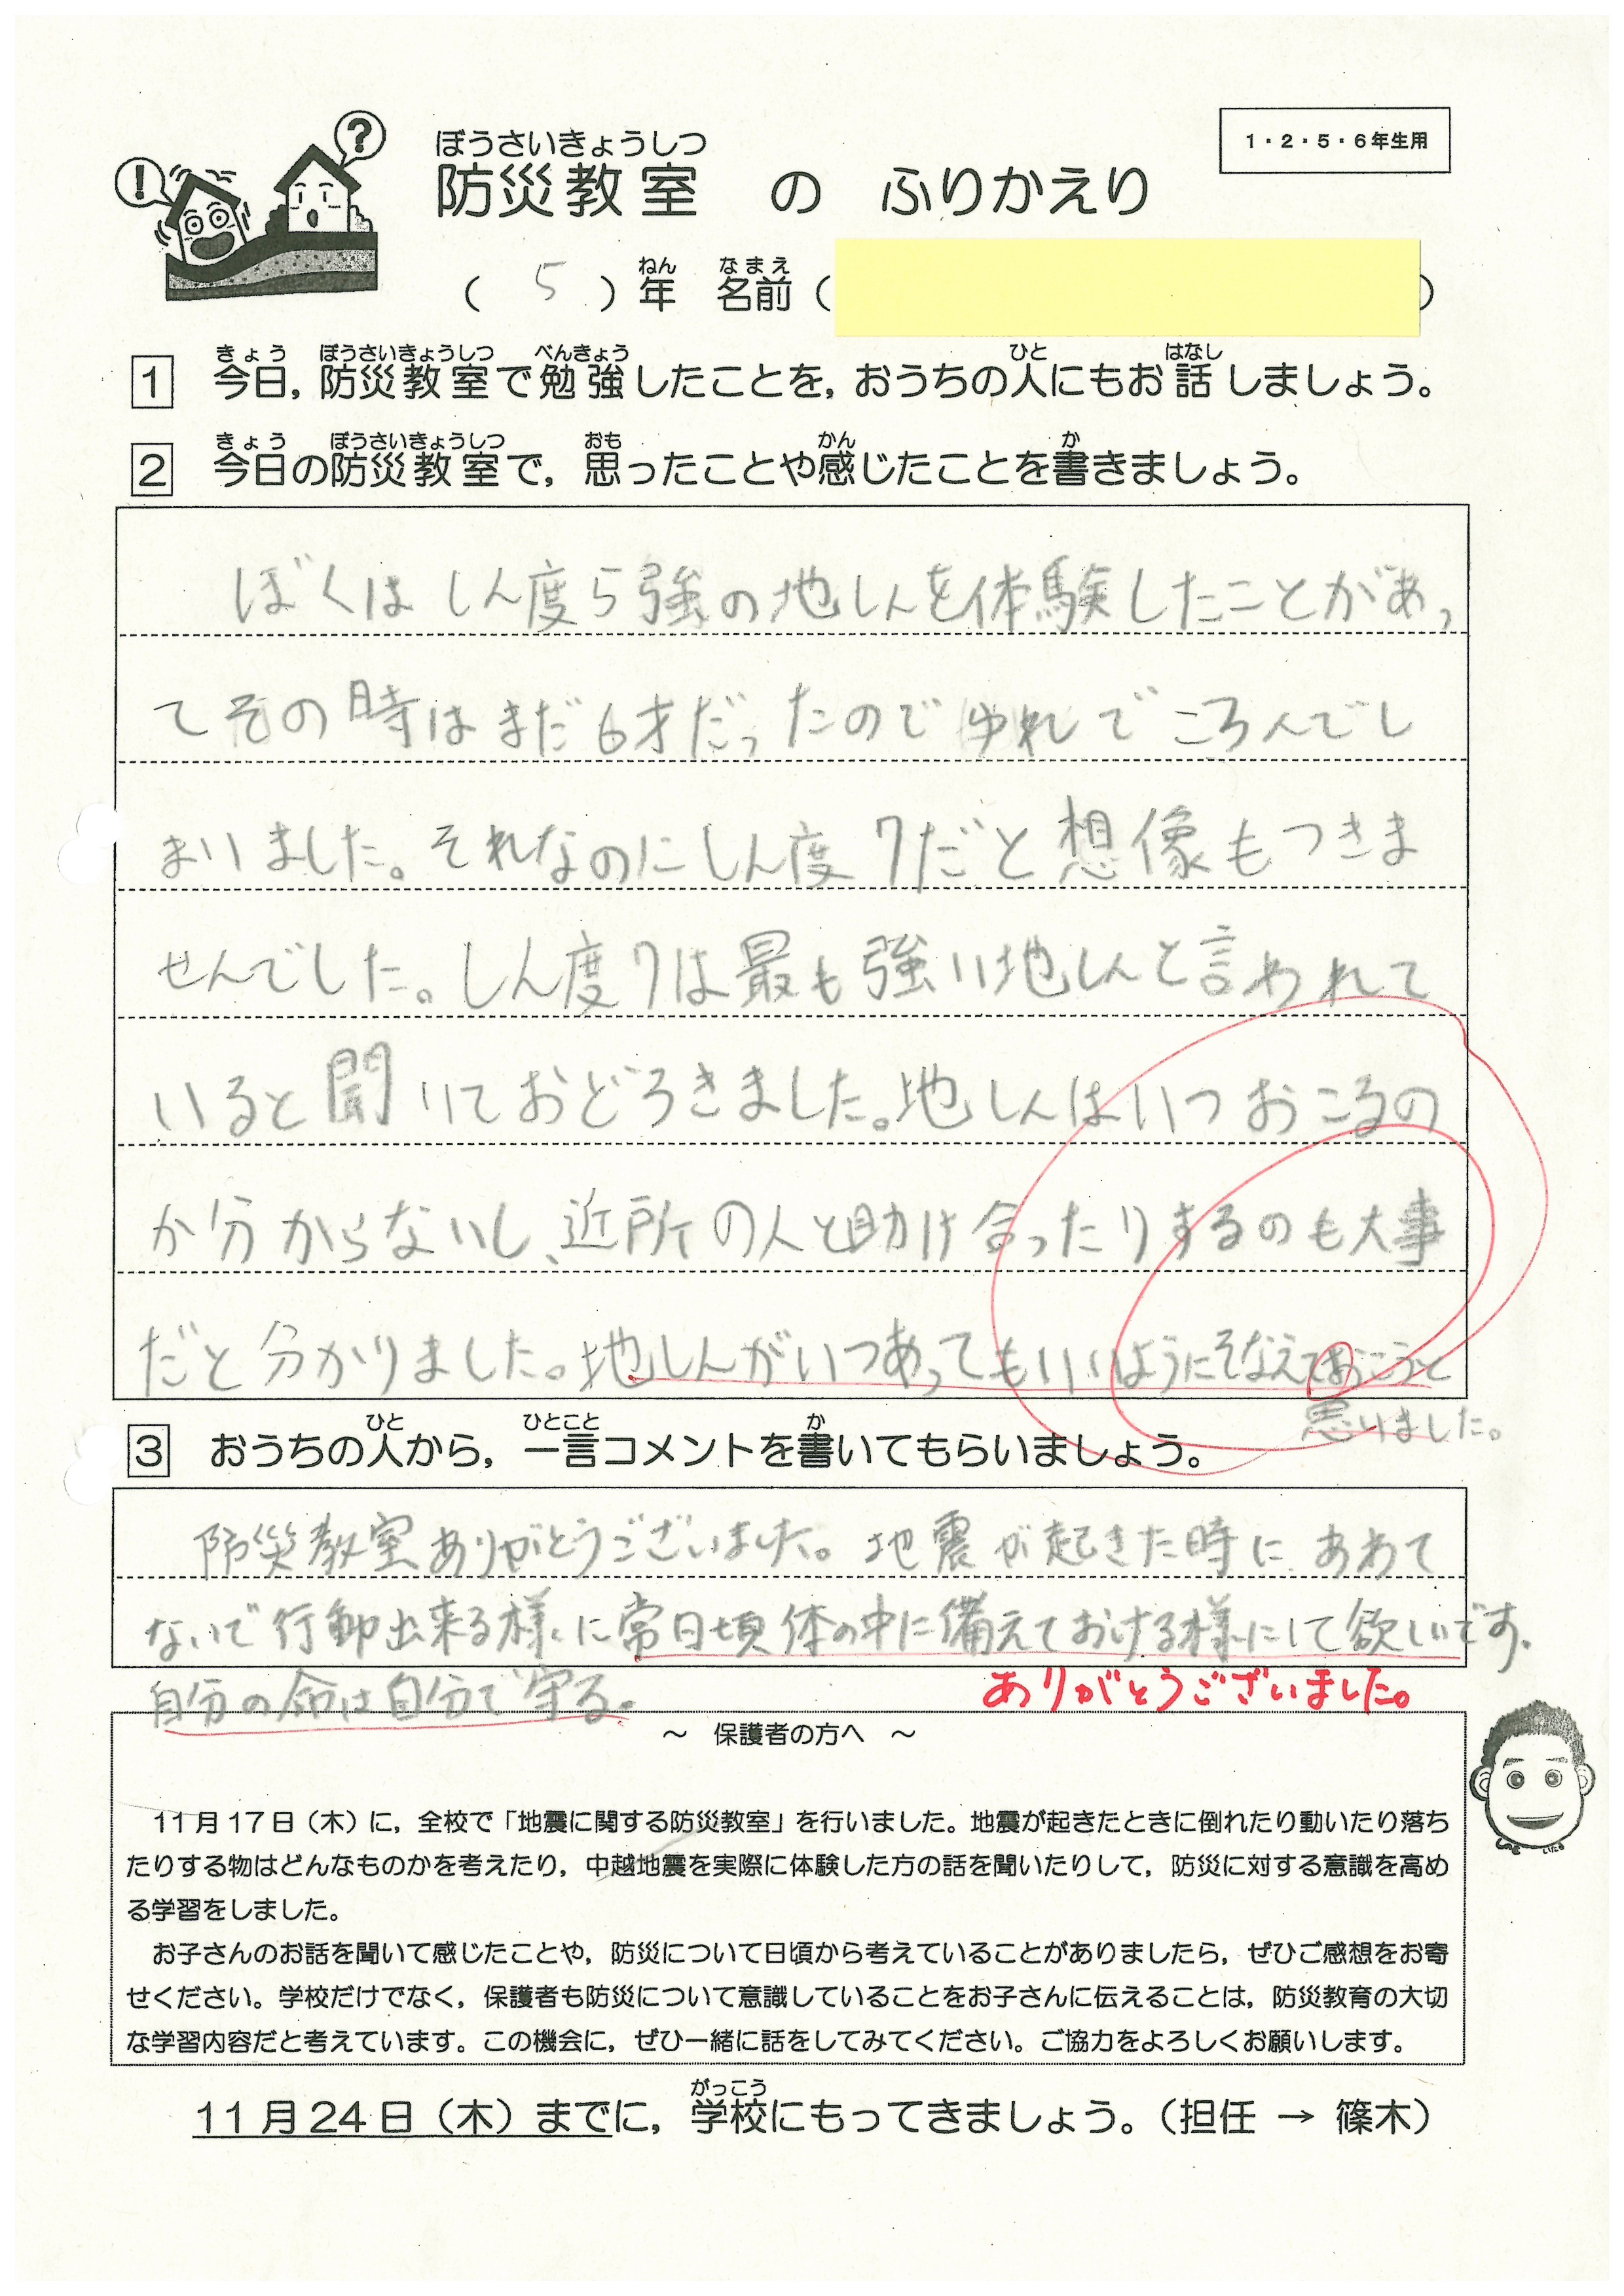 1・2・5・6年生用
ぼうさいきょうしつ
防災教室 の ふりかえり
ねん なまえ
( 5 )年 名前( )
きょう ぼうさいきょうしつ べんきょう ひと はなし
1 今日,防災教室で勉強したことを,おうちの人にもお話しましょう。
きょう ぼうさいきょうしつ おも かん か
2 今日の防災教室で,思ったことや感じたことを書きましょう。
ぼくはしん度5強の地しんを体験したことがあっ
てその時はまだ6才だったのでゆれでころんでし
まいました。それなのにしん度7だと想像もつきま
せんでした。しん度7は最も強い地しんと言われて
いると聞いておどろきました。地しんはいつおこるの
か分からないし、近所の人と助け合ったりするのも大事
だと分かりました。地しんがいつあってもいいようにそなえておこうと
思いました。
ひと ひとこと か
3 おうちの人から,一言コメントを書いてもらいましょう。
防災教室ありがとうございました。地震が起きた時にあわて
ないで行動出来る様に常日頃体の中に備えておける様にして欲しいです。
自分の命は自分で守る。
ありがとうございました。
~ 保護者の方へ ~
11月17日(木)に,全校で「地震に関する防災教室」を行いました。地震が起きたときに倒れたり動いたり落ち
たりする物はどんなものかを考えたり,中越地震を実際に体験した方の話を聞いたりして,防災に対する意識を高め
る学習をしました。
お子さんのお話を聞いて感じたことや,防災について日頃から考えていることがありましたら,ぜひご感想をお寄
せください。学校だけでなく,保護者も防災について意識していることをお子さんに伝えることは,防災教育の大切
な学習内容だと考えています。この機会に,ぜひ一緒に話をしてみてください。ご協力をよろしくお願いします。
がっこう
11月24日(木)までに,学校にもってきましょう。(担任 → 篠木)